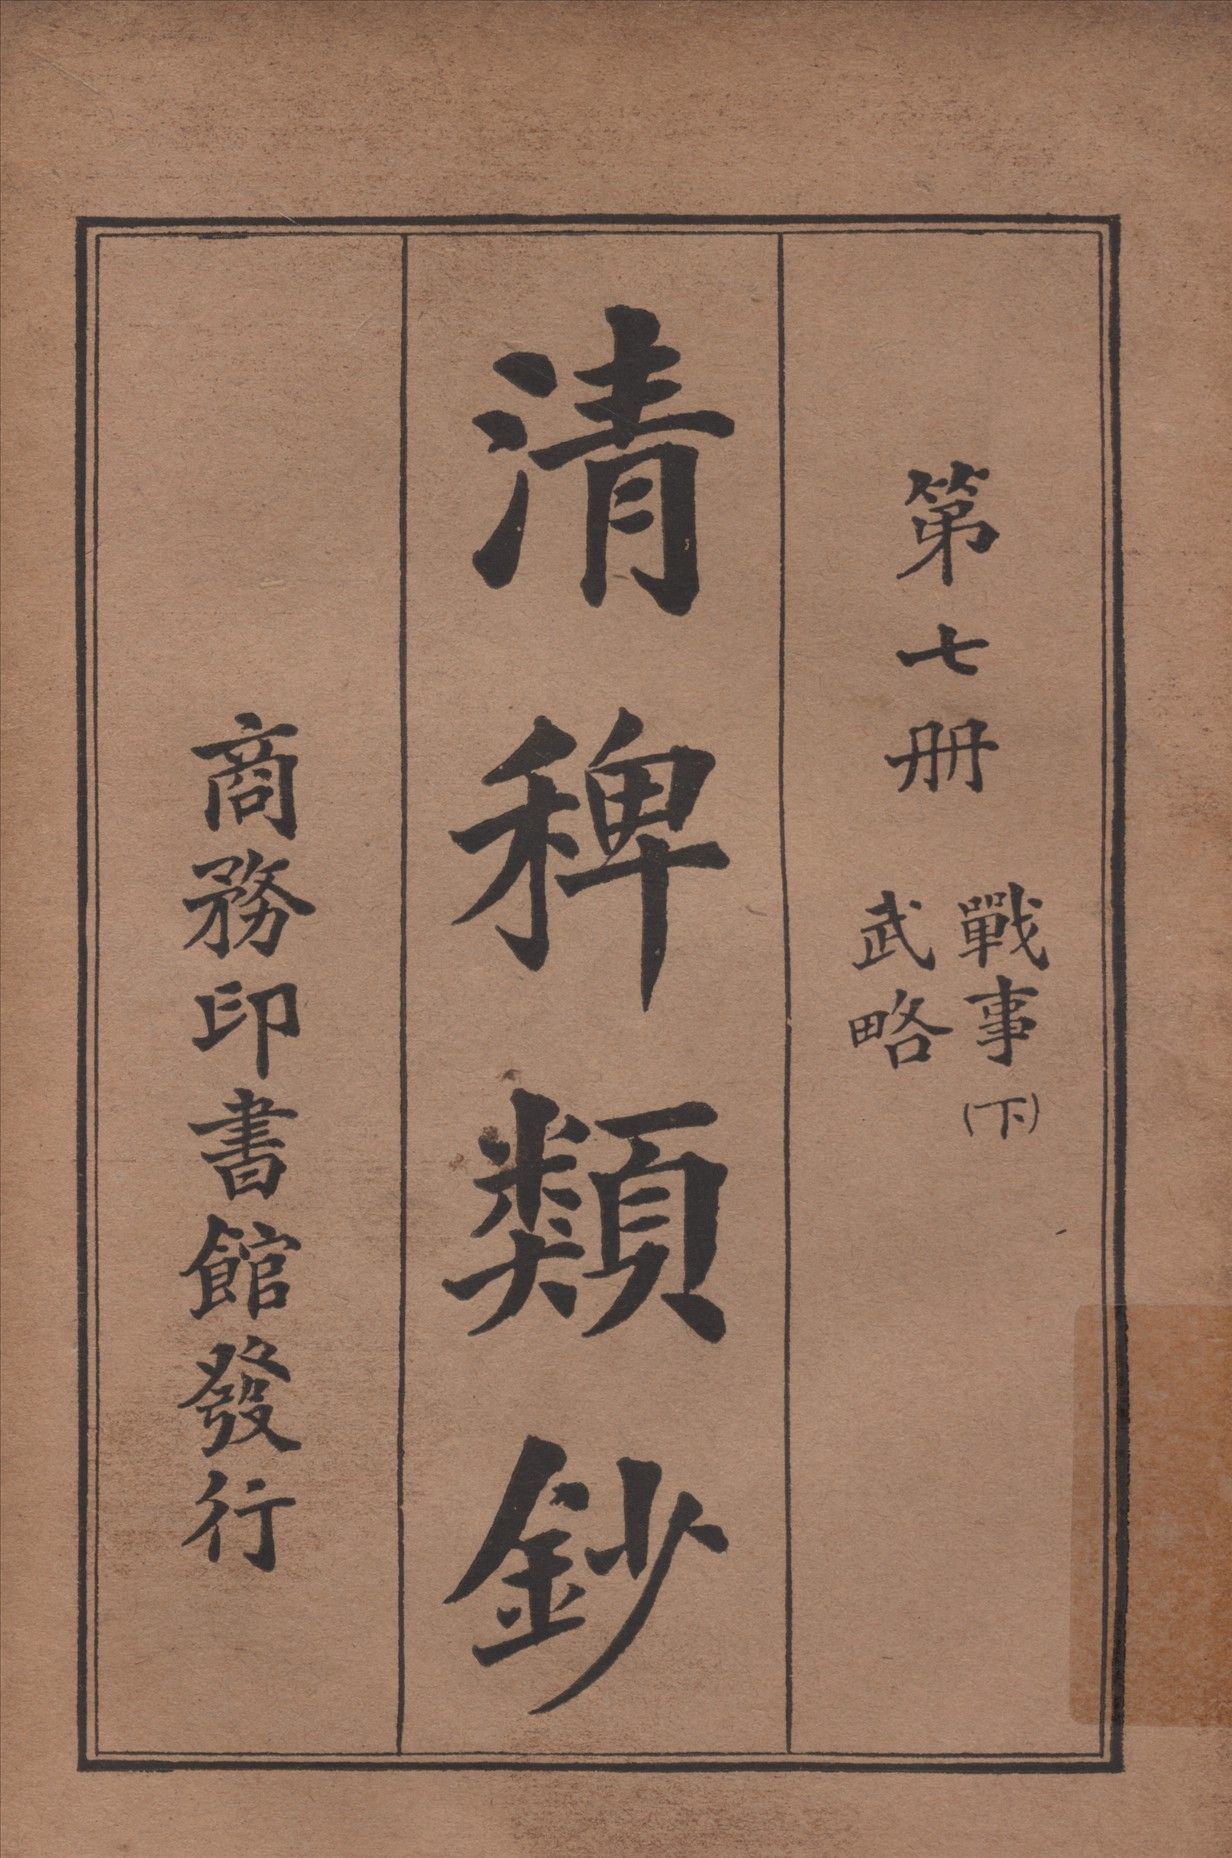 第七册
戰事(下)
武略
清稗類鈔
商務印書館發行